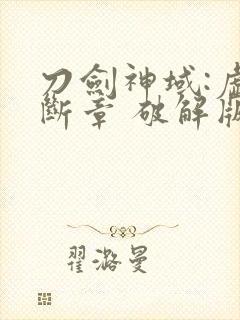 刀劍神域:虛
斷章 破解版
翟潞曼